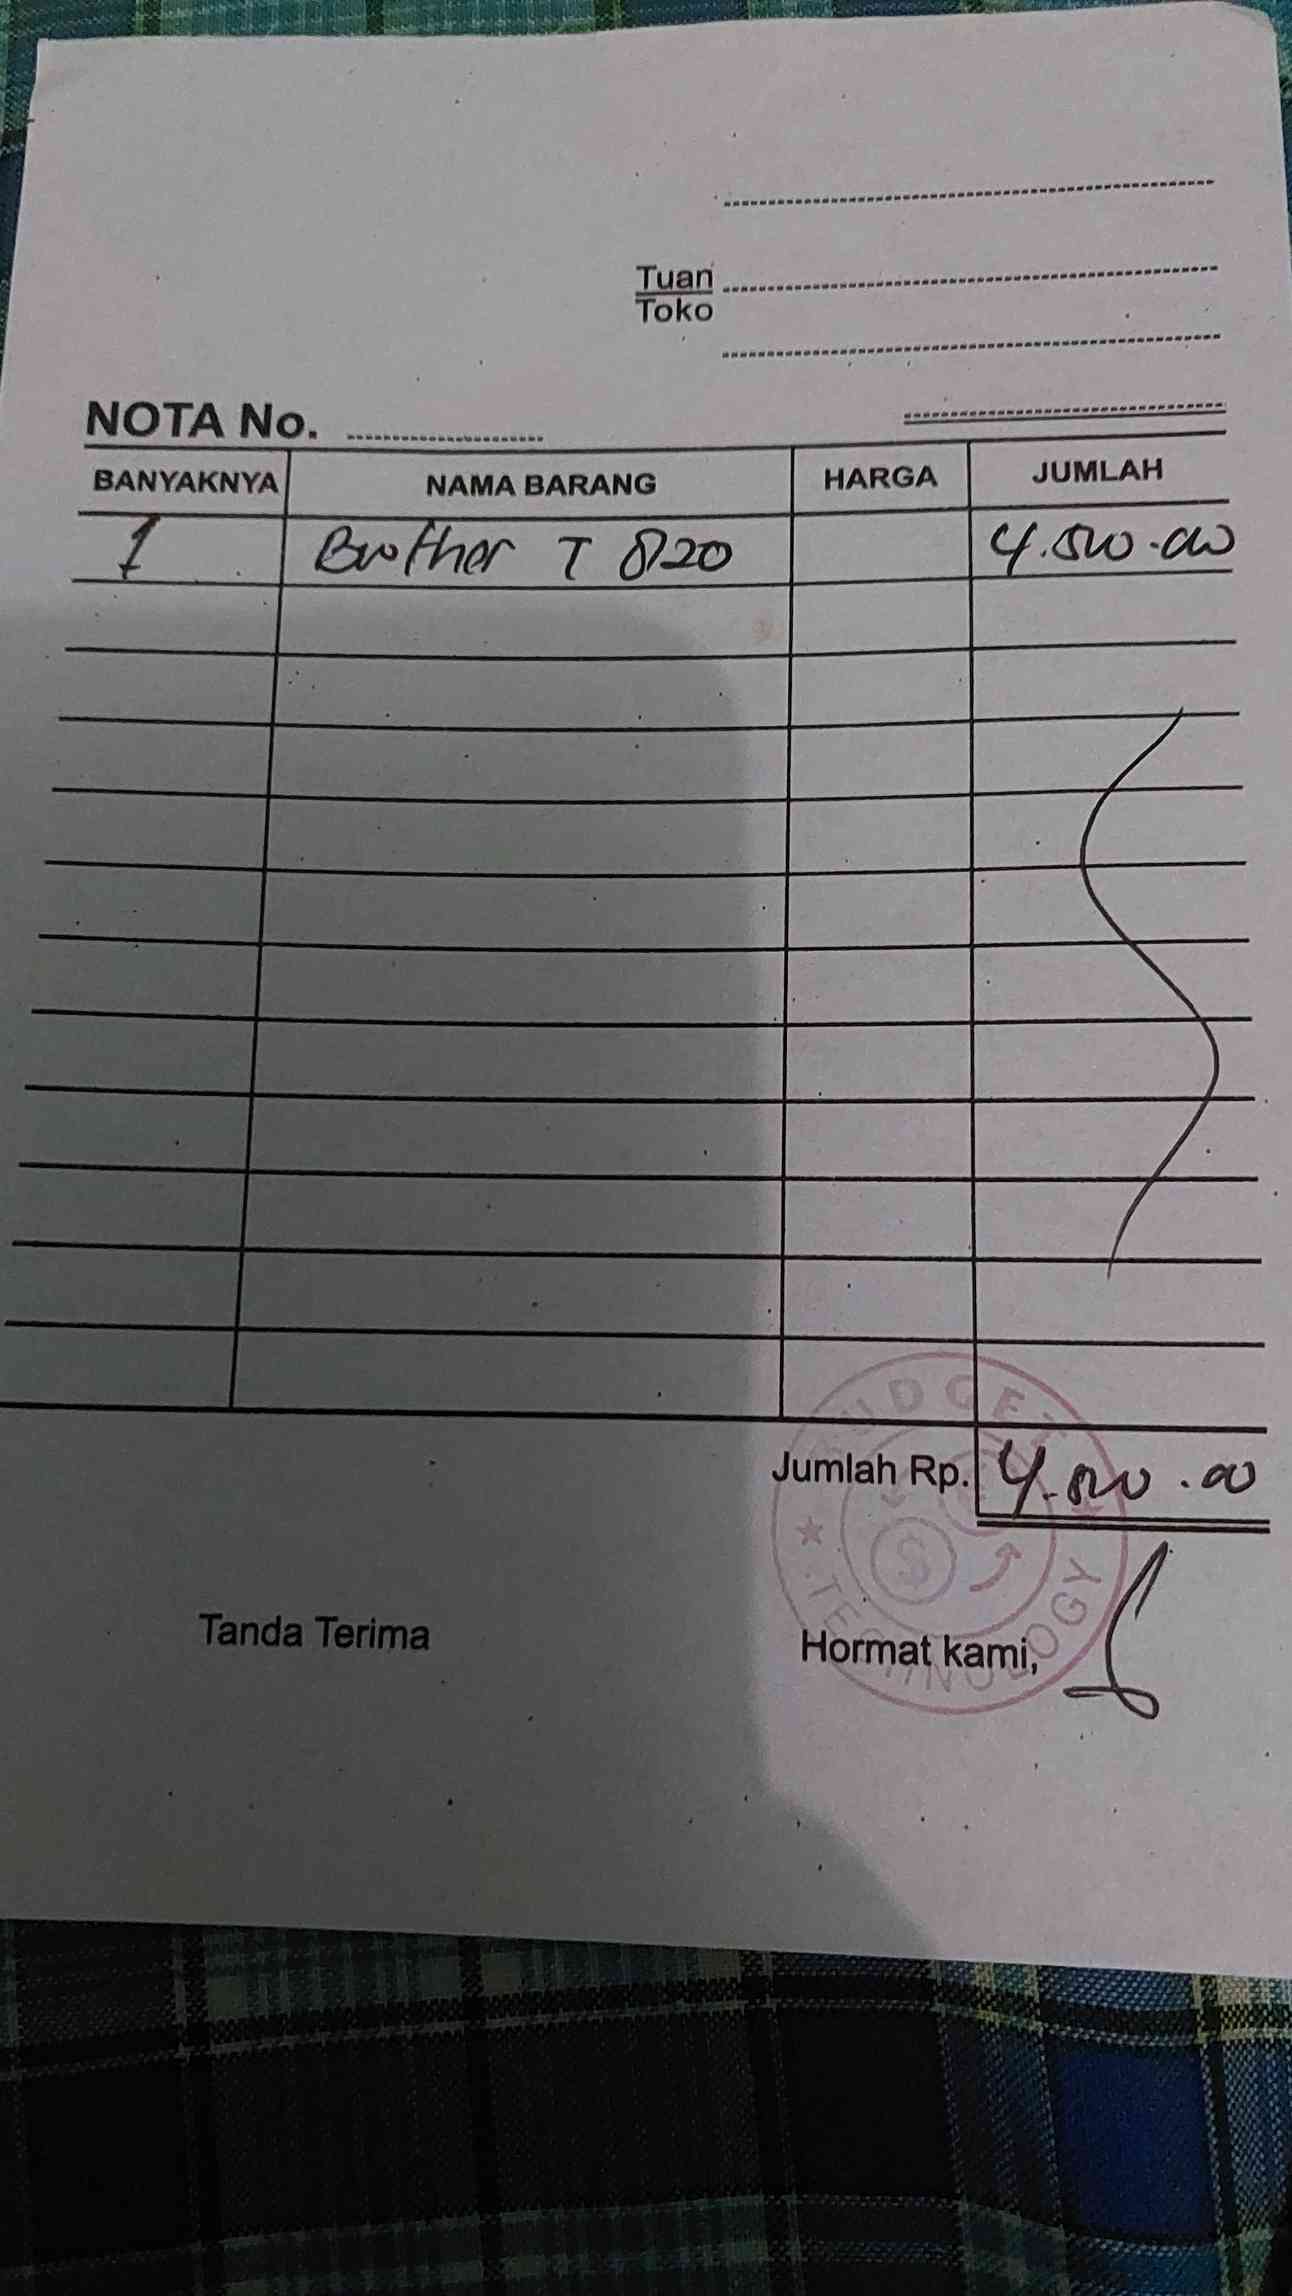 Tuan
Toko
NOTA No.
BANYAKNYA NAMA BARANG HARGA JUMLAH
1 Brother T 820 4.500.000
Jumlah Rp. 4.500.00
BUDGET
TECHNOLOGY
$
Tanda Terima Hormat kami,